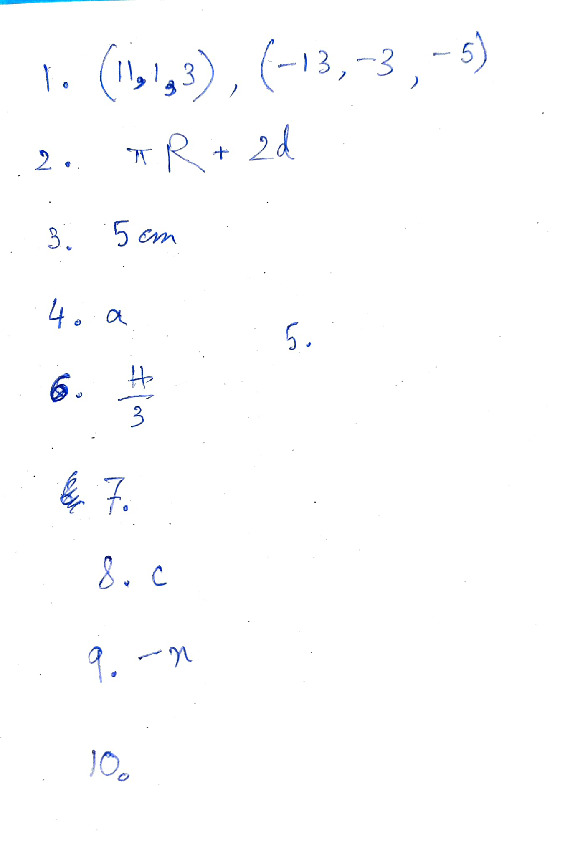 1. (11,1,3), (-13,-3,-5)
2. πR + 2d
3. 5 cm
4. a
5.
6. H/3
7.
8. c
9. -x
10.